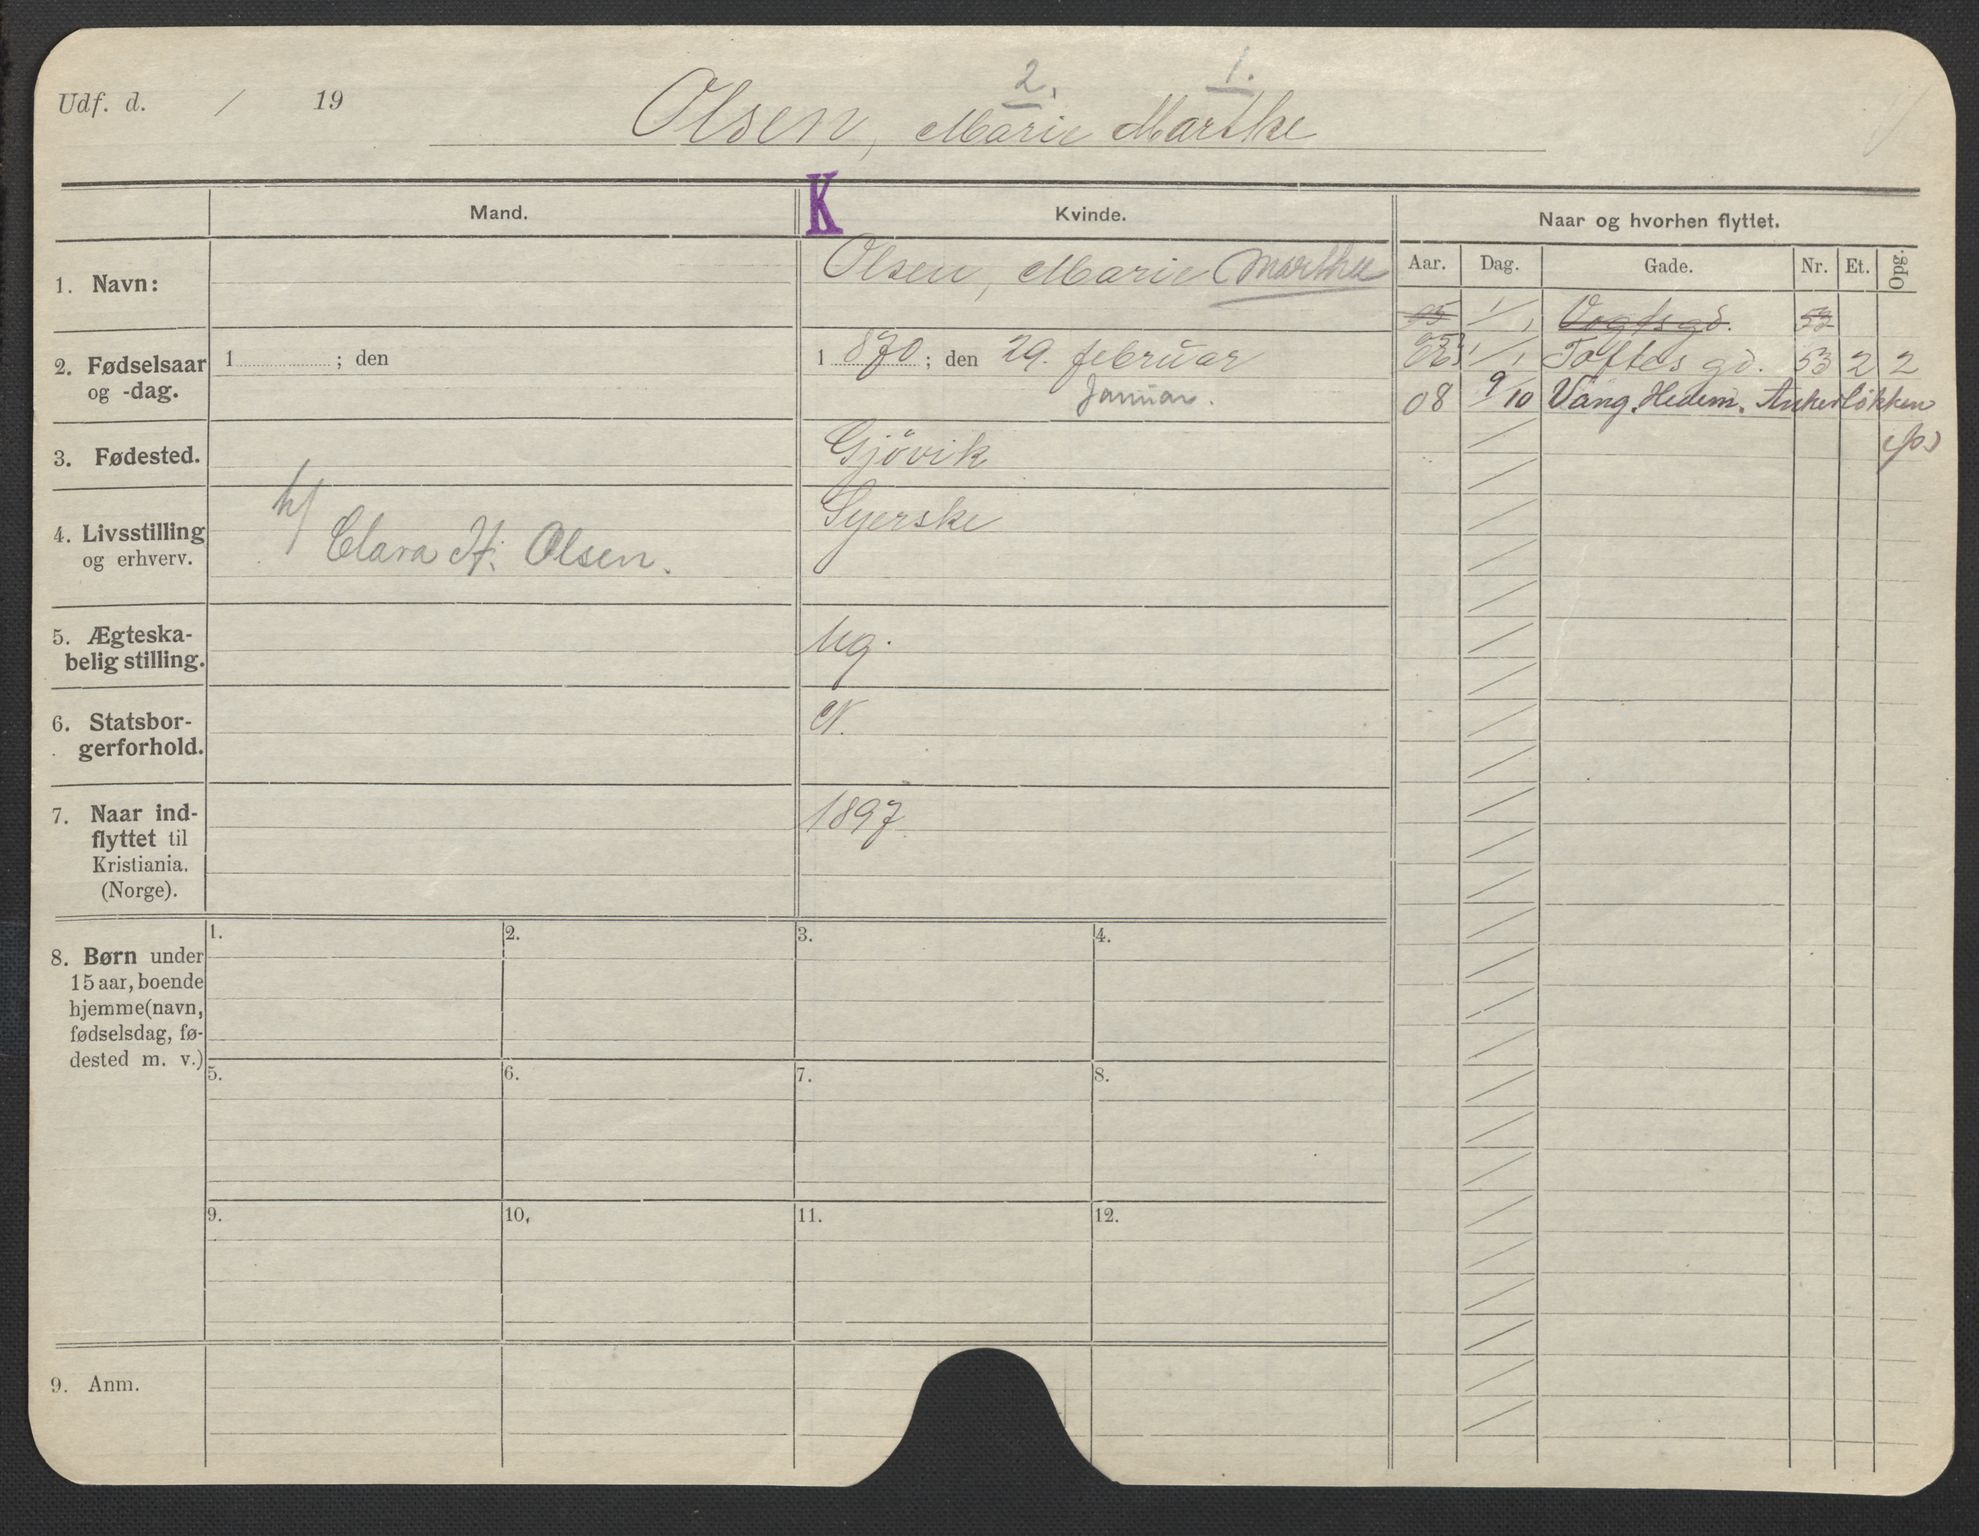 Udf. d. / 19
2. 1.
Olsen, Marie Marthe
Mand.
K
Kvinde.
Naar og hvorhen flyttet.
Aar. Dag. Gade. Nr. Et. Opg.
1. Navn:
Olsen, Marie Marthea
05 1/1 Vogtsgd. 52
1/1 Toftes gd. 53 2 2
08 9/10 Vang. Hedem. Ankerløkken
2. Fødselsaar
og -dag.
1 ; den
1870 ; den 29. februar
Januar.
3. Fødested.
Gjövik
4. Livsstilling
og erhverv.
h/ Clara H. Olsen.
Syerske
5. Ægteska-
belig stilling.
Ug.
6. Statsbor-
gerforhold.
N.
7. Naar ind-
flyttet til
Kristiania.
(Norge).
1897
8. Børn under
15 aar, boende
hjemme (navn,
fødselsdag, fø-
dested m. v.)
1. 2. 3. 4.
5. 6. 7. 8.
9. 10, 11. 12.
9. Anm.